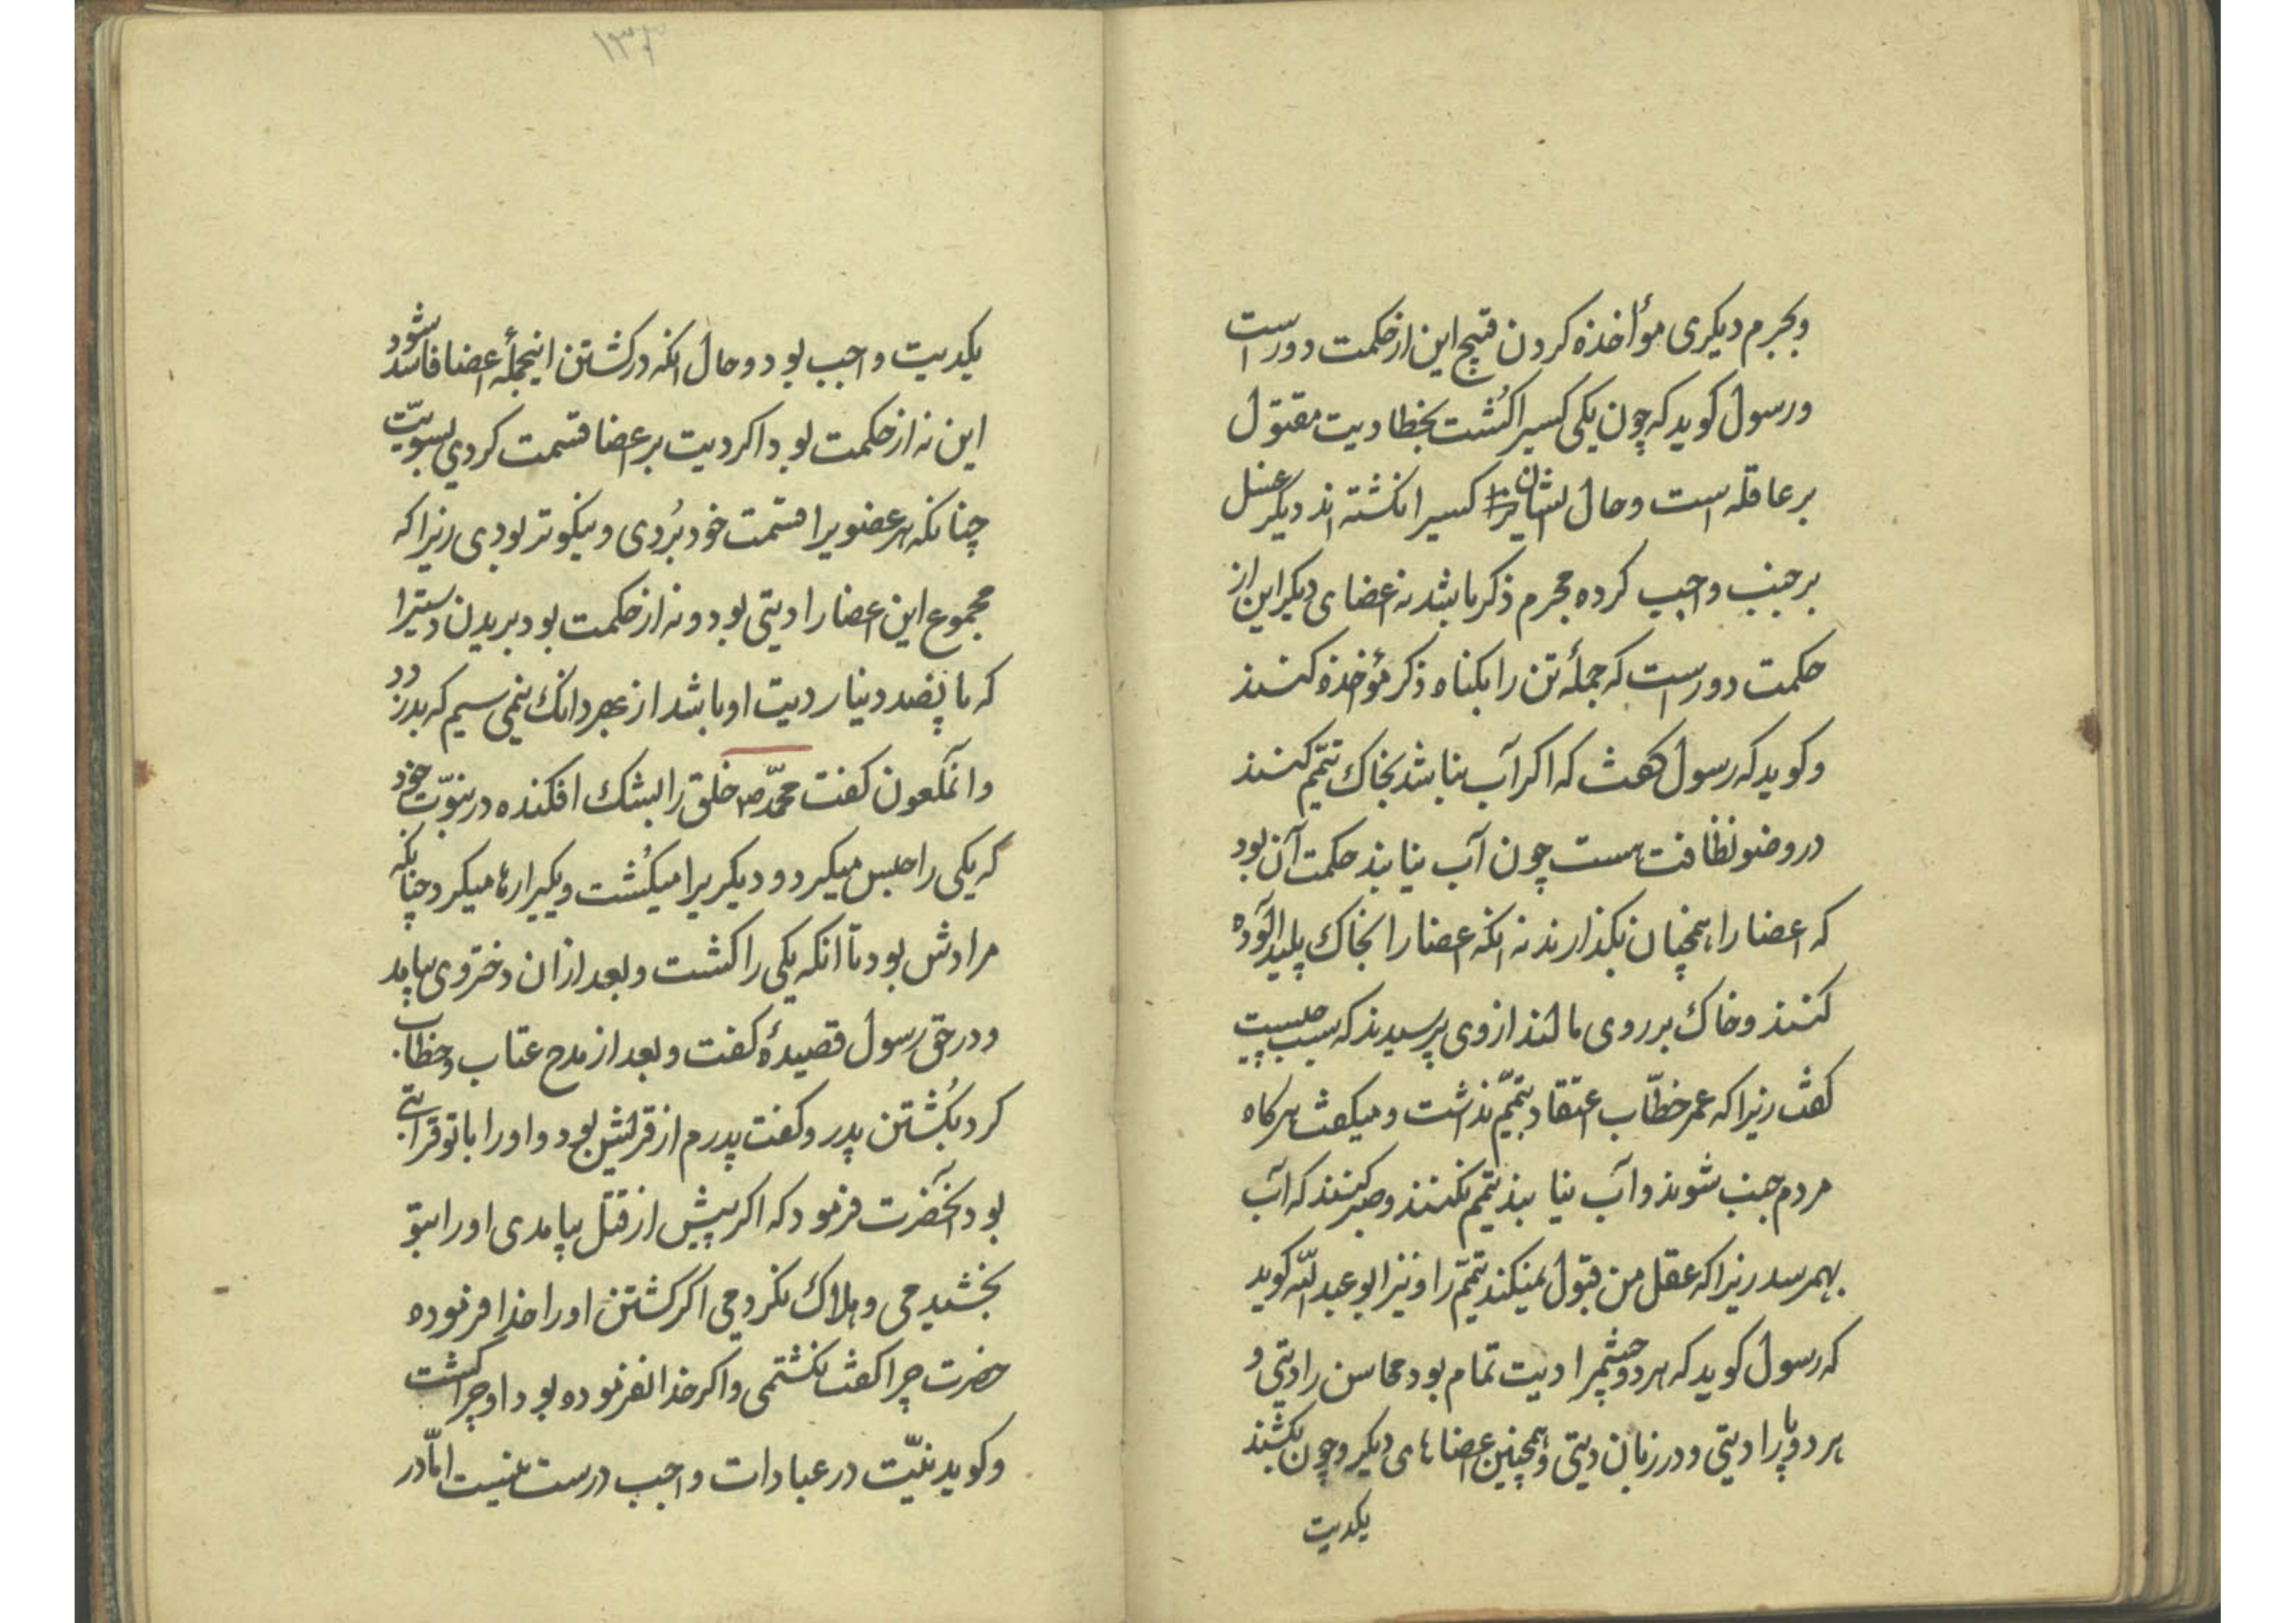 وبجرم دیکری مؤاخذه کردن قبیح این از حکمت دور است
ورسول کوید که چون یکی کسیرا کُشت بخطا دیت مقتول
بر عاقله است وحال ایشان کسیرا نکشته اند دیگر غسل
بر جنب واجب کرده مجرم ذکر باشد نه اعضای دیکر این از
حکمت دور است که جملهٔ تن را بکناه ذکر مؤخذه کنند
وکوید که رسول کفت که اکر آب نباشد بخاک تیمّم کنند
در وضو نظافت هست چون آب نیابند حکمت آن بود
که اعضا را همچنان بکذارند نه انکه اعضا را بخاک پلید آلوده
کنند وخاک بر روی مالند از وی پرسیدند که سبب چیست
کفت زیرا که عمر خطّاب اعتقاد بتیمّم نداشت ومیکفت هرکاه
مردم جنب شوند وآب نیابند تیمّم نکنند وصبر کنند که آب
بهمرسد زیرا که عقل من قبول نمیکند تیمّم را ونیز ابو عبد اللّه کوید
که رسول کوید که هر دو چشمرا دیت تمام بود محاسن را دیتی و
هر دو پا را دیتی ودر زبان دیتی وهمچنین اعضاهای دیکر وچون بکشند
یکدیت
۱۳۶
یکدیت واجب بود وحال انکه در کشتن اینجملهٔ اعضا فاسد شود
این نه از حکمت بود اکر دیت بر اعضا قسمت کردی بسویّت
چنانکه هر عضویرا قسمت خود بُردی ونیکوتر بودی زیرا که
مجموع این اعضا را دیتی بود ونه از حکمت بود بریدن دستیرا
که پانصد دینار دیت او باشد از بهر دانک نیمی سیم که بدزدد
وانملعون کفت محمّد ص خلق را بشک افکنده در نبوّت خود
که یکی را حبس میکرد ودیکریرا میکُشت ویکیرا رها میکرد چنانکه
مرادش بود تا انکه یکی را کشت وبعد از ان دختر وی بیامد
ودر حق رسول قصیدهٔ کفت وبعد از مدح عتاب وخطاب
کرد بکُشتن پدر وکفت پدرم از قریش بود واو را با تو قرابتی
بود انحضرت فرمود که اکر پیش از قتل بیامدی اورا بتو
بخشیدمی وهلاک نکردمی اکر کشتن اورا خدا فرموده
حضرت چرا کفت نکشتمی واکر خدا نفرموده بود او چرا کشت
وکوید نیّت در عبادات واجب درست نیست امّا در